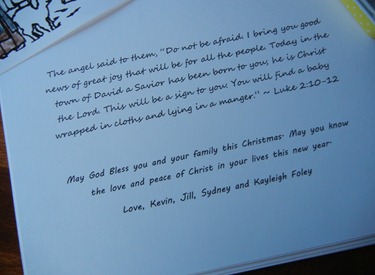 The angel said to them, "Do not be afraid. I bring you good
news of great joy that will be for all the people. Today in the
town of David a Savior has been born to you; he is Christ
the Lord. This will be a sign to you: You will find a baby
wrapped in cloths and lying in a manger." ~ Luke 2:10-12
May God Bless you and your family this Christmas. May you know
the love and peace of Christ in your lives this new year.
Love, Kevin, Jill, Sydney and Kayleigh Foley